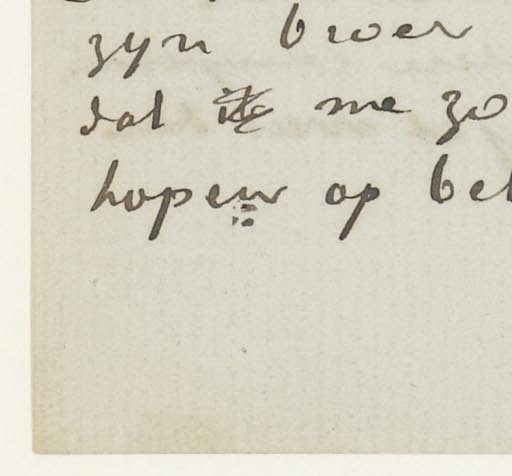 zyn broer
dat me zo
hopen op bet